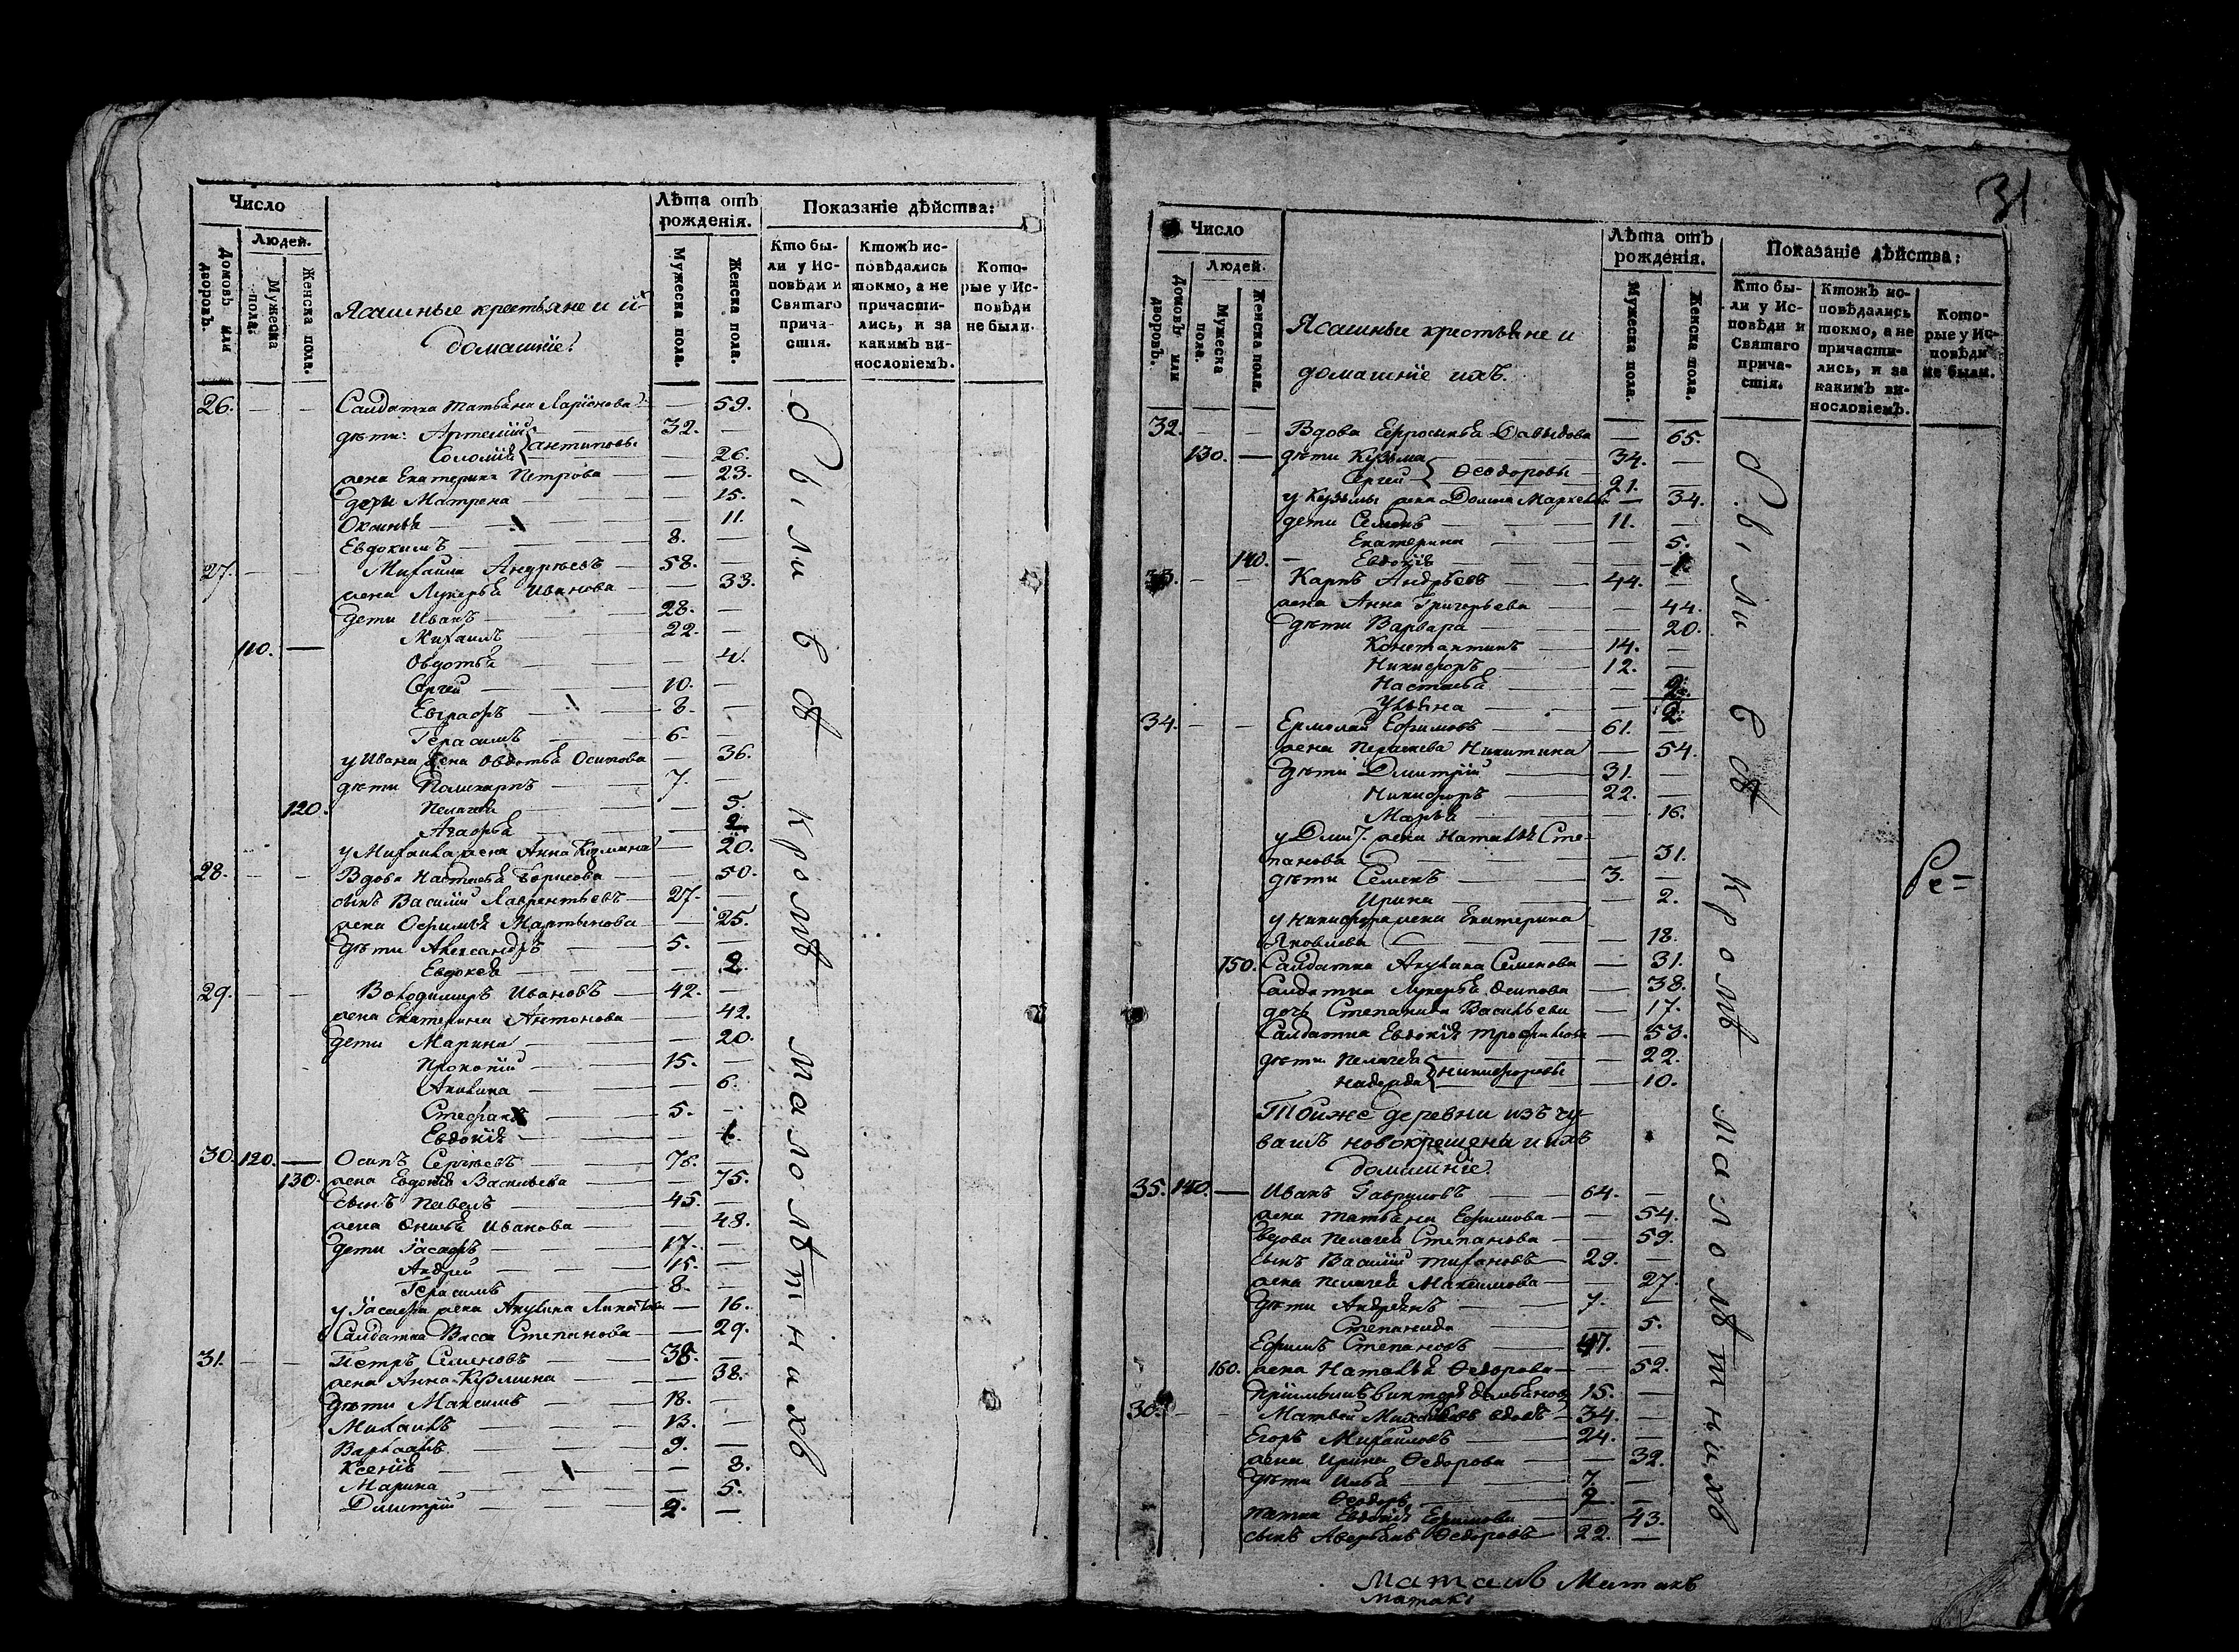 Число
Людей.
Домовъ или дворовъ.
Мужеска пола.
Женска пола.
Ясашные крестьяне и их
домашние.
Лѣта отъ рожденія.
Мужеска пола.
Женска пола.
Показаніе дѣйства:
Кто были у Исповѣди и Святаго причастія.
Ктожъ исповѣдались токмо, а не причастились, и за какимъ винословіемъ.
Которые у Исповѣди не были.
26. — — Салдатка Татьяна Ларіонова — 59.
дѣти: Артемій 32. —
Соломія антиповы — 26.
жена Екатерина Петрова — 23.
дети Матрена — 15.
Оксинья — 11.
Евдокимъ 8. —
27. — — Михаила Андреевъ 58. —
жена Лукерья Иванова — 33.
дети Иванъ 28. —
110. — Михаилъ 22. —
Овдотья — 4.
Сергей 10. —
Евграфъ 8. —
Герасимъ 6. —
у Ивана жена Овдотья Осипова — 36.
дѣти Поликарпъ 7. —
120. Пелагея — 5.
Агафья — 2.
у Михаила жена Анна Козмина — 20.
28. — — Вдова Настасья Борисова — 50.
сынъ Василій Лаврентьевъ 27. —
жена Офимья Мартынова — 25.
дѣти Александръ 5. —
Евдокея — 2.
29. — — Володимиръ Ивановъ 42. —
жена Екатерина Антонова — 42.
дети Марина — 20.
Прокопій 15. —
Акилина — 6.
Стефанъ 5. —
Евдокія — 1.
30. 120. — Осипъ Сергѣевъ 76. —
130. жена Евдокія Васильева — 75.
сынъ Павелъ 45. —
жена Онисья Иванова — 48.
дети Гасафъ 17. —
Андрей 15. —
Герасимъ 8. —
у Гасафа жена Акулина — 16.
Салдатка Васса Степанова — 29.
31. — — Петръ Семеновъ 38. —
жена Анна Кузмина — 38.
дѣти Максимъ 18. —
Михаилъ 13. —
Варлаамъ 9. —
Ксенія — 8.
Марина — 5.
Дмитрій 2. —
были всѣ кромѣ малолѣтнихъ
31
Число
Людей.
Домовъ или дворовъ.
Мужеска пола.
Женска пола.
Ясашные крестьяне и
домашніе ихъ.
Лѣта отъ рожденія.
Мужеска пола.
Женска пола.
Показаніе дѣйства:
Кто были у Исповѣди и Святаго причастія.
Ктожъ исповѣдались токмо, а не причастились, и за какимъ винословіемъ.
Которые у Исповѣди не были.
32. — — Вдова Ефросинья Давыдова — 65.
130. — дѣти Кузьма 34. —
Сергей Ѳеодоровы 21. —
у Кузьмы жена — 34.
дети Семенъ 11. —
Екатерина — 5.
140. Евдокія — 1.
33. — — Карпъ Андрѣевъ 44. —
жена Анна Григорьева — 44.
дѣти Варвара — 20.
Константинъ 14. —
Никифоръ 12. —
Настасья — 9.
Ульяна — 2.
34. — — Ермолай Ефимовъ 61. —
жена Параскева Никитина — 54.
дѣти Дмитрій 31. —
Никифоръ 22. —
Марья — 16.
у Дмит. жена Наталья Сте-
панова — 31.
дѣти Семенъ 3. —
Ирина — 2.
у Никифора жена Екатерина
Яковлева — 18.
150. Салдатка Акулина Семенова — 31.
Салдатка Лукерья Осипова — 38.
дочь Степанида Васильева — 17.
Салдатка Евдокія Трофимова — 53.
дѣти Пелагея — 22.
Надежда Никифоровы — 10.
Тойже деревни изъ чу-
вашъ новокрещена и ихъ
домашніе.
35. 140. — Иванъ Гавриловъ 64. —
жена Татьяна Ефимова — 54.
Вдова Пелагея Степанова — 59.
сынъ Василій Тихановъ 29. —
жена Пелагея Максимова — 27.
дѣти Андреянъ 7. —
Степанида — 5.
Ефимъ Степановъ 47. —
160. жена Наталья Ѳедорова — 52.
пріимышъ Викторъ Демьяновъ 15. —
36. — — Матвей Михайловъ вдовъ 34. —
Егоръ Михайловъ 24. —
жена Ирина Ѳедорова — 32.
дѣти Илья 7. —
Ѳеодоръ 2. —
тетка Евдокія Ефимова — 43.
сынъ Аверьянъ Ѳедоровъ 22. —
были всѣ кромѣ малолѣтнихъ
Ре=